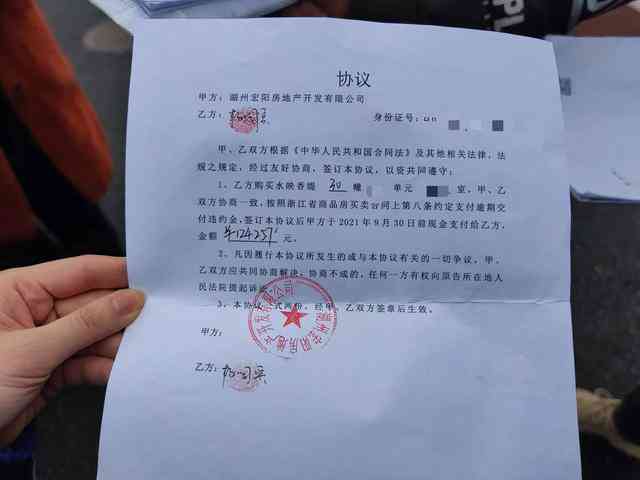 协议
甲方：湖州宏阳房地产开发有限公司
乙方：
身份证号：
甲、乙双方根据《中华人民共和国合同法》及其他相关法律、法
规之规定，经过友好协商，签订本协议，以资共同遵守：
1、乙方购买水映香缇 幢 单元 室，甲、乙
双方协商一致，按照浙江省商品房买卖合同上第八条约定支付逾期交
付违约金，签订本协议后甲方于2021年9月30日前现金支付给乙方，
金额 ¥124257 元。
2、凡因履行本协议所发生的或与本协议有关的一切争议，甲、
乙双方应共同协商解决，协商不成的，任何一方有权向原告所在地人
民法院提起诉讼
3、本协议一式两份，经甲、乙双方签章后生效。
甲方：
乙方：